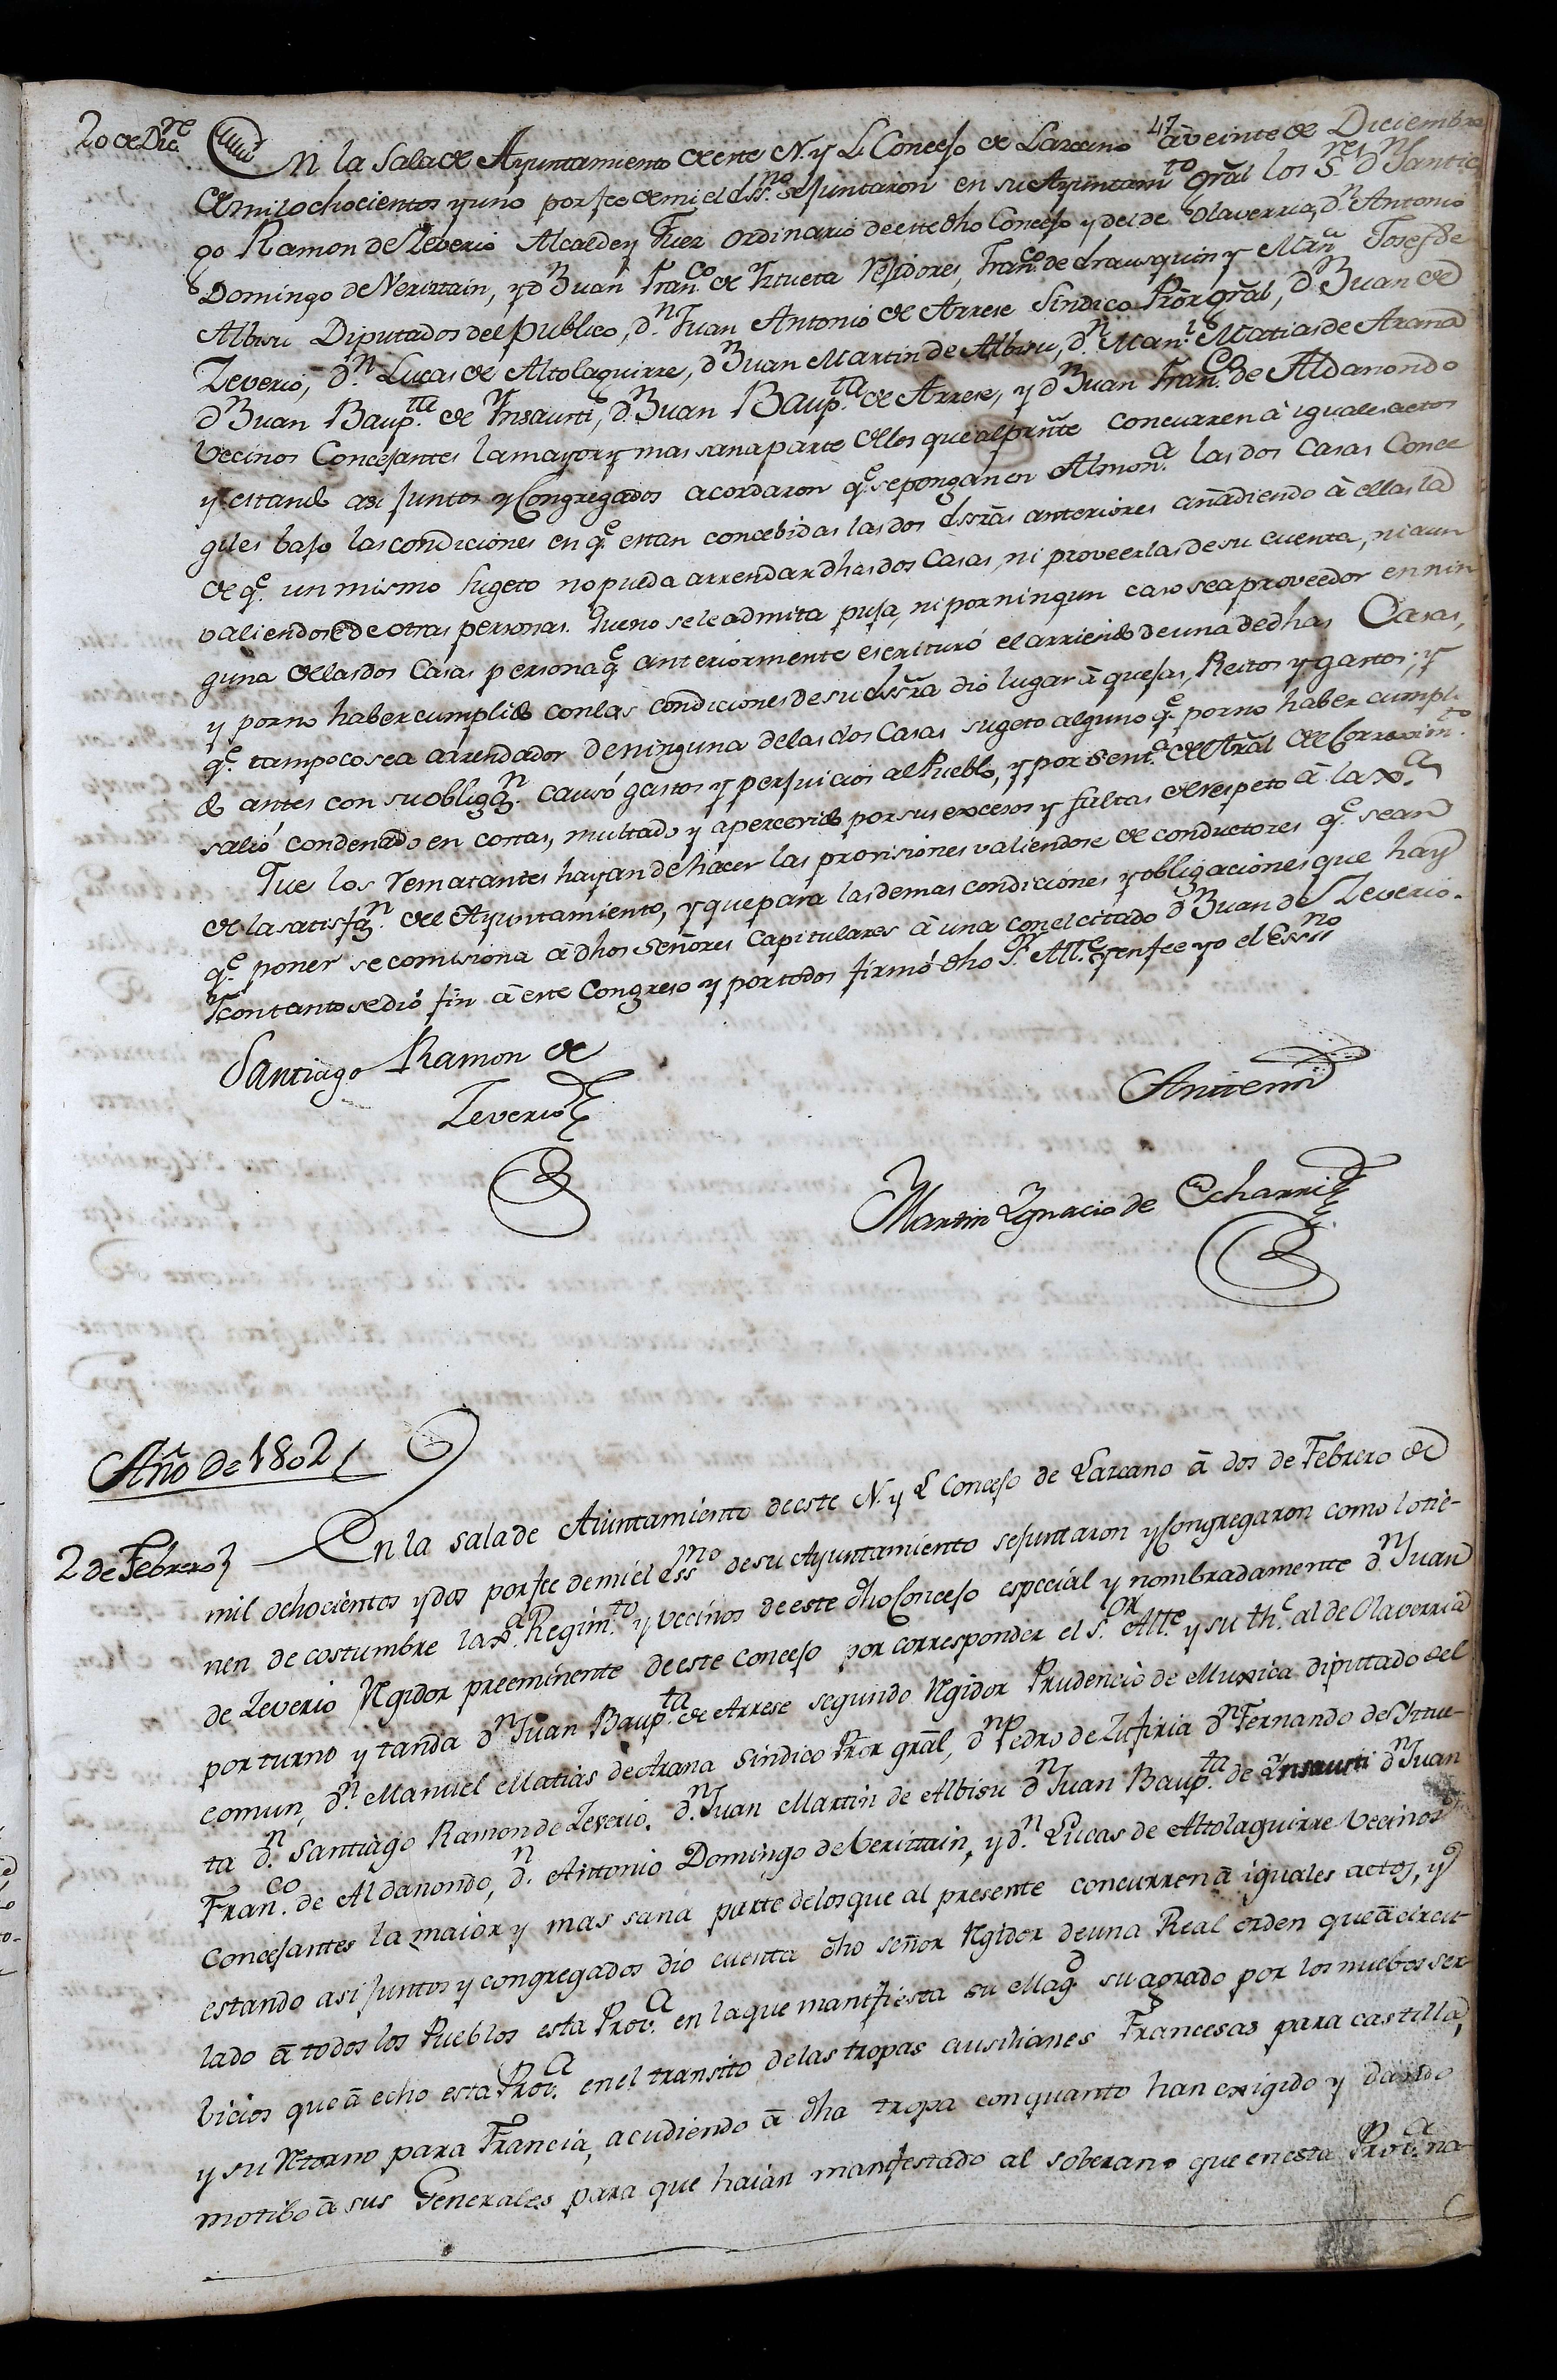 47
20 de Dic.re
En la Sala de Ayuntamiento de este N. y L. Concejo de Lazcano à veinte de Diciembre
de mil ochocientos y uno por fee de mi el Ess.no se juntaron en su Ayuntam.to gr̃al los S.res d.n Santia
go Ramon de Zeverio Alcalde y Juez ordinario de este dho Concejo y del de Olaverria, d.n Antonio
Domingo de Veriztain, y d.n Juan Fran.co de Ytueta Regidores, Fran.co de Yrausquin y Mrn̄ Josef de
Albisu Diputados del publico, d.n Juan Antonio de Arrese Sindico Pror gr̃al, d.n Juan de
Zeverio, d.n Lucas de Altolaguirre, d.n Juan Martin de Albisu, d.n Man.l Matias de Arana
d.n Juan Baup.ta de Ynsausti, d.n Juan Baup.ta de Arrese, y d.n Juan Fran.co de Aldanondo
Vecinos Concejantes la mayor y mas sana parte de los que al prñte concurren à iguales actos
y estando asi juntos y Congregados acordaron q.e se pongan en Almon.a las dos Casas Conce
giles bajo las condiciones en q.e estan concebidas las dos Essras anteriores añadiendo à ellas la
de q.e un mismo sugeto no pueda arrendar dhas dos Casas, ni proveerlas de su cuenta, ni aun
valiendose de otras personas. Que no se le admita puja, ni por ningun caso sea proveedor en nin
guna de las dos Casas persona q.e anteriormente escrituró el arriendo de una de dhas Casas,
y por no haber cumplido con las condiciones de su Essra dio lugar à quejas, Reitos y gastos; y
q.e tampoco sea arrendador de ninguna de las dos Casas sugeto alguno q.e por no haber cumpli
do antes con su oblig.n causó gastos y perjuicios al Pueblo, y por sent.a del Tr̃al de Correxim.to
salió condenado en costas, multado y apercevido por sus excesos y faltas de respeto à la x.a
Que los rematantes hayan de hacer las provisiones valiendose de conductores q.e sean
de la satisf.n del Ayuntamiento, y que para las demas condiciones y obligaciones que hay
q.e poner se comisiona à dhos Señores Capitulares à una con el citado d.n Juan de Zeverio.
Y con tanto se dió fin à este Congreso y por todos firmó dho S.r All.e y en fee yo el Ess.no
Santiago Ramon de
Zeverio
Ante mi
Martin Ygnacio de Echarri
Año de 1802
2 de Febrero
En la sala de Aiuntamiento de este N. y L Concejo de Lazcano ā dos de Febrero de
mil ochocientos y dos por fee de mi el Ess.no de su Ayuntamiento se juntaron y Congregaron como lo tie-
nen de costumbre la x.a Regim.to y vecinos de este dho Concejo especial y nombradamente d.n Juan
de Zeverio Regidor preeminente de este concejo por corresponder el s.or All.e y su th.e al de Olaverria
por turno y tanda d.n Juan Baup.ta de Arrese segundo Regidor Prudencio de Muxica diputado del
comun, d.n Manuel Matias de Arana Sindico Pror gr̄al, d.n Pedro de Zufiria d.n Fernando de Ytue-
ta d.n Santiago Ramon de Zeverio, d.n Juan Martin de Albisu d.n Juan Baup.ta de Ynsausti d.n Juan
Fran.co de Aldanondo, d.n Antonio Domingo de Veriztain, y d.n Lucas de Altolaguirre Vecinos
Concejantes la maior y mas sana parte de los que al presente concurren ā iguales actos, y
estando asi juntos y congregados dio cuenta dho señor Regidor de una Real orden que ā circu-
lado ā todos los Pueblos esta Prov.a en la que manifiesta su Mag.d su agrado por los nuebos ser-
bicios que ā echo esta Prov.a en el transito de las tropas ausiliares Francesas para castilla,
y su Retorno para Francia, acudiendo ā dha tropa con quanto han exigido y dando
motibo ā sus Generales para que haian manifestado al soberano que en esta Prov.a na